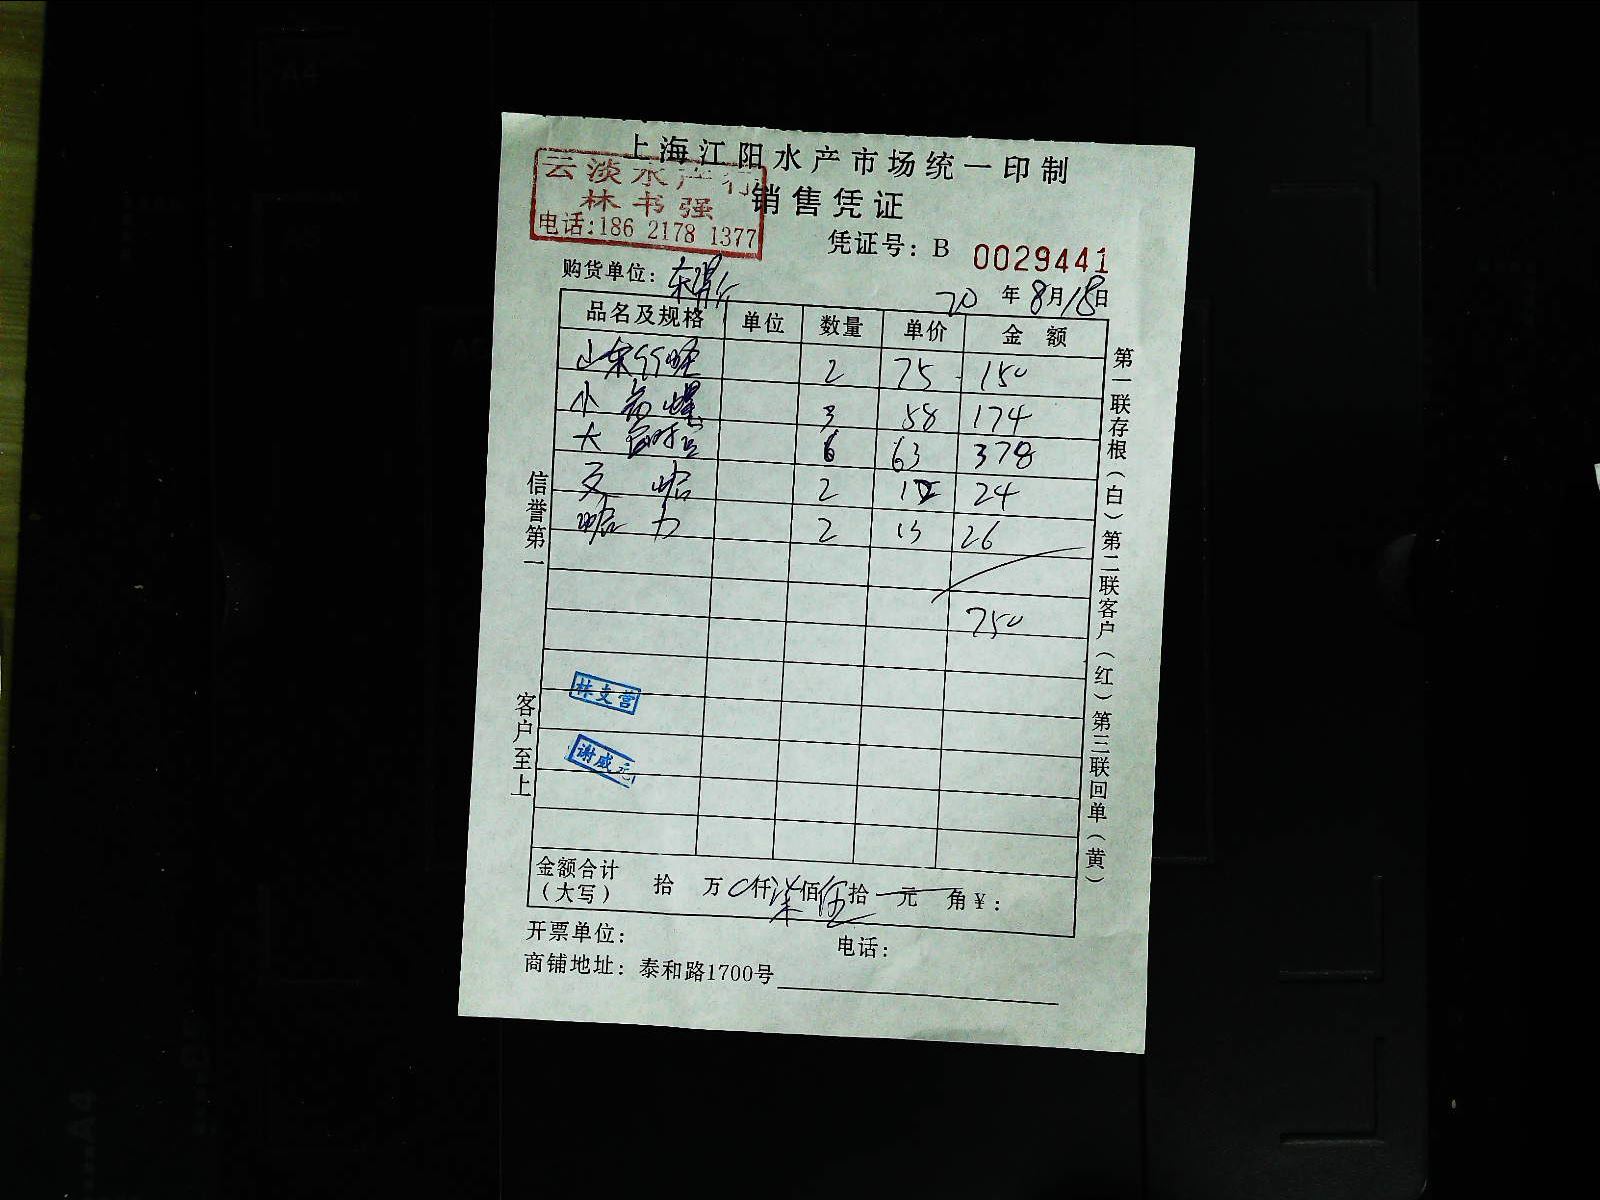 上海江阳水产市场统一印制
云淡水产行
林书强
电话:186 2178 1377
销售凭证
凭证号: B 0029441
购货单位:
20年8月18日
品名及规格 单位 数量 单价 金额
山东竹蛏 2 75 150
小 3 58 174
大 6 63 378
2 12 24
2 13 26
750
信誉第一
客户至上
第一联存根(白)第二联客户(红)第三联回单(黄)
林文营
谢威元
金额合计(大写) 拾 万 0仟柒佰伍拾 元 角¥:
开票单位: 电话:
商铺地址: 泰和路1700号